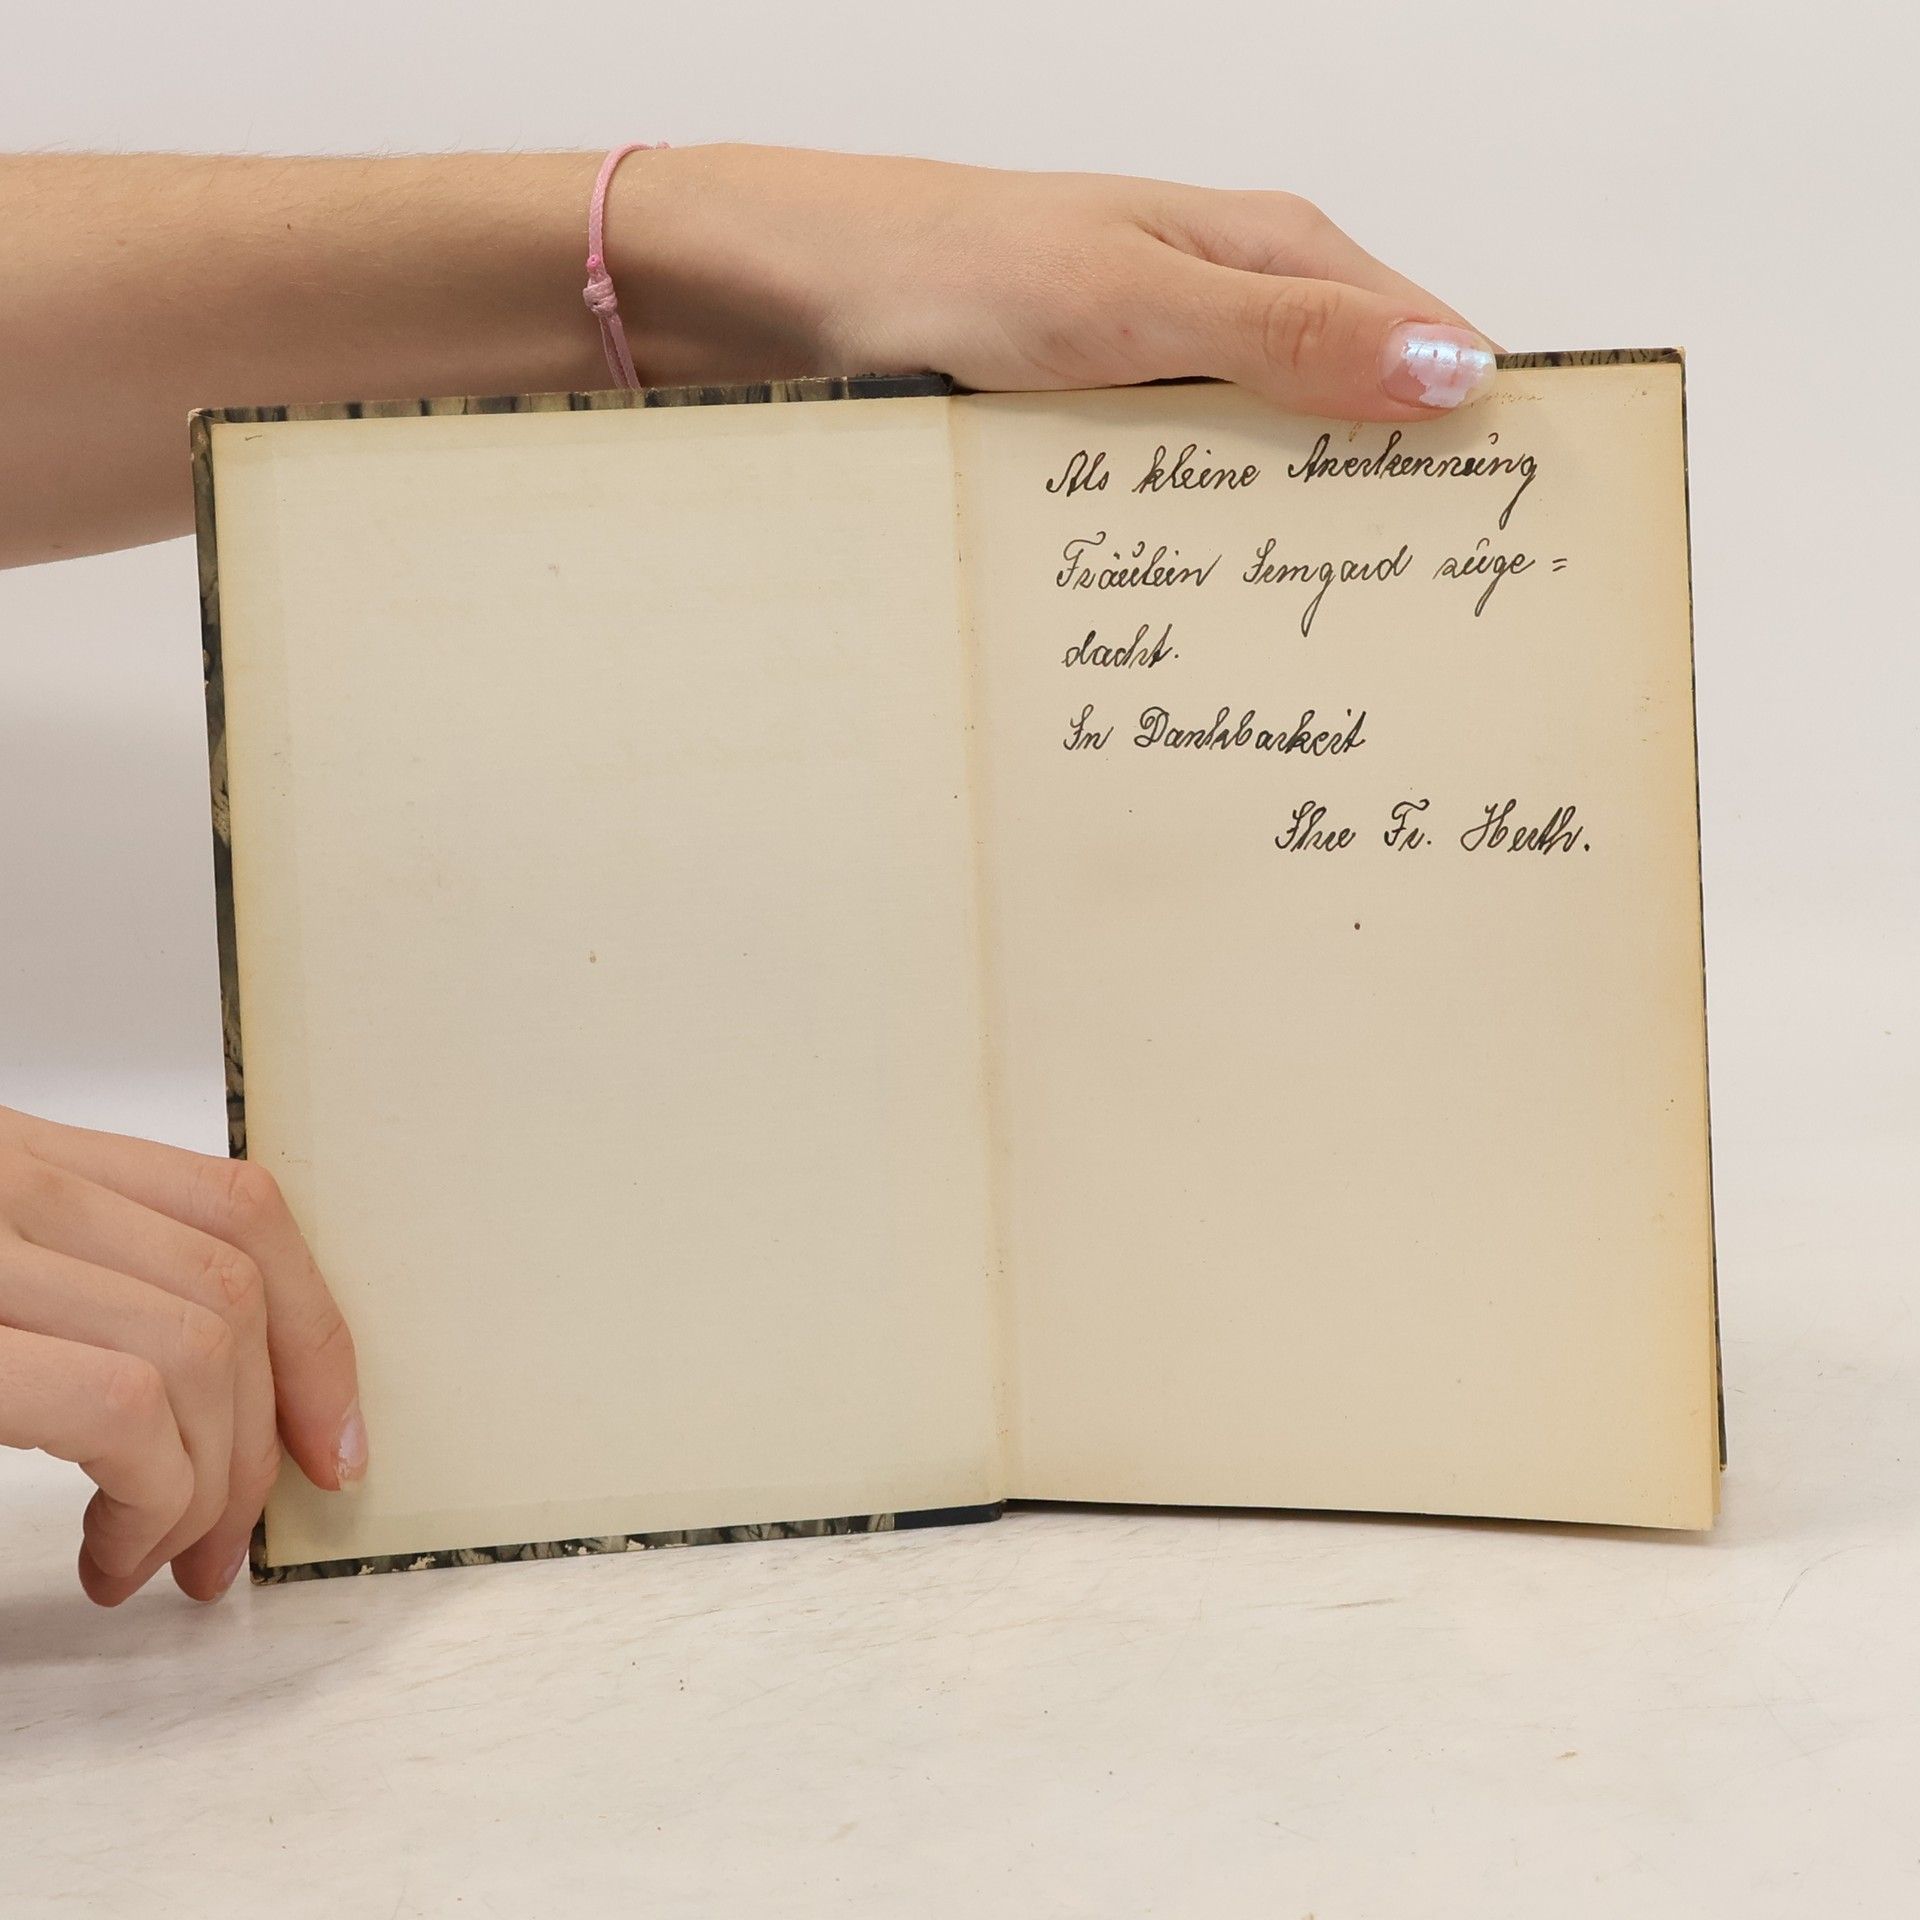 Als kleine Anerkennung
Fräulein Irmgard zuge=
dacht.
In Dankbarkeit
Ihre Fr. Herth.